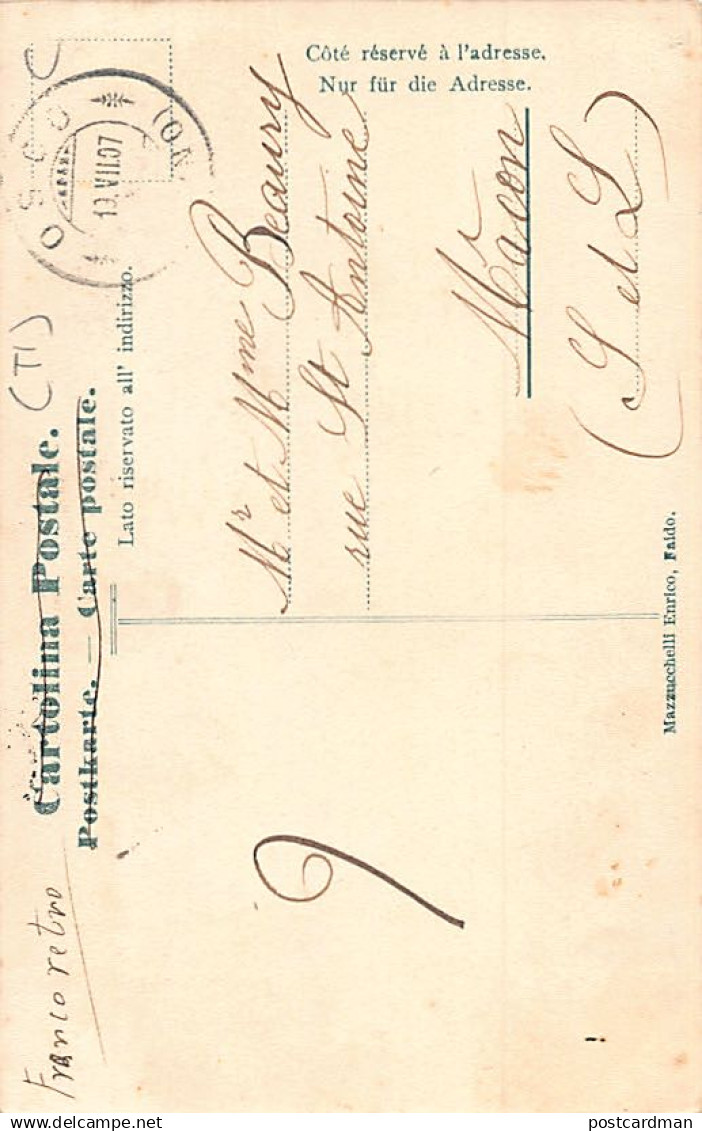 Franco retro
Cartolina Postale. (TI)
Postkarte. — Carte postale.
Lato riservato all' indirizzo.
Côté réservé à l'adresse.
Nur für die Adresse.
OSCO
(
19.VII.07
Mr et Mme Beaury
rue St Antoine
Mâcon
(S et L)
9
Mazzucchelli Enrico, Faido.
postcardman